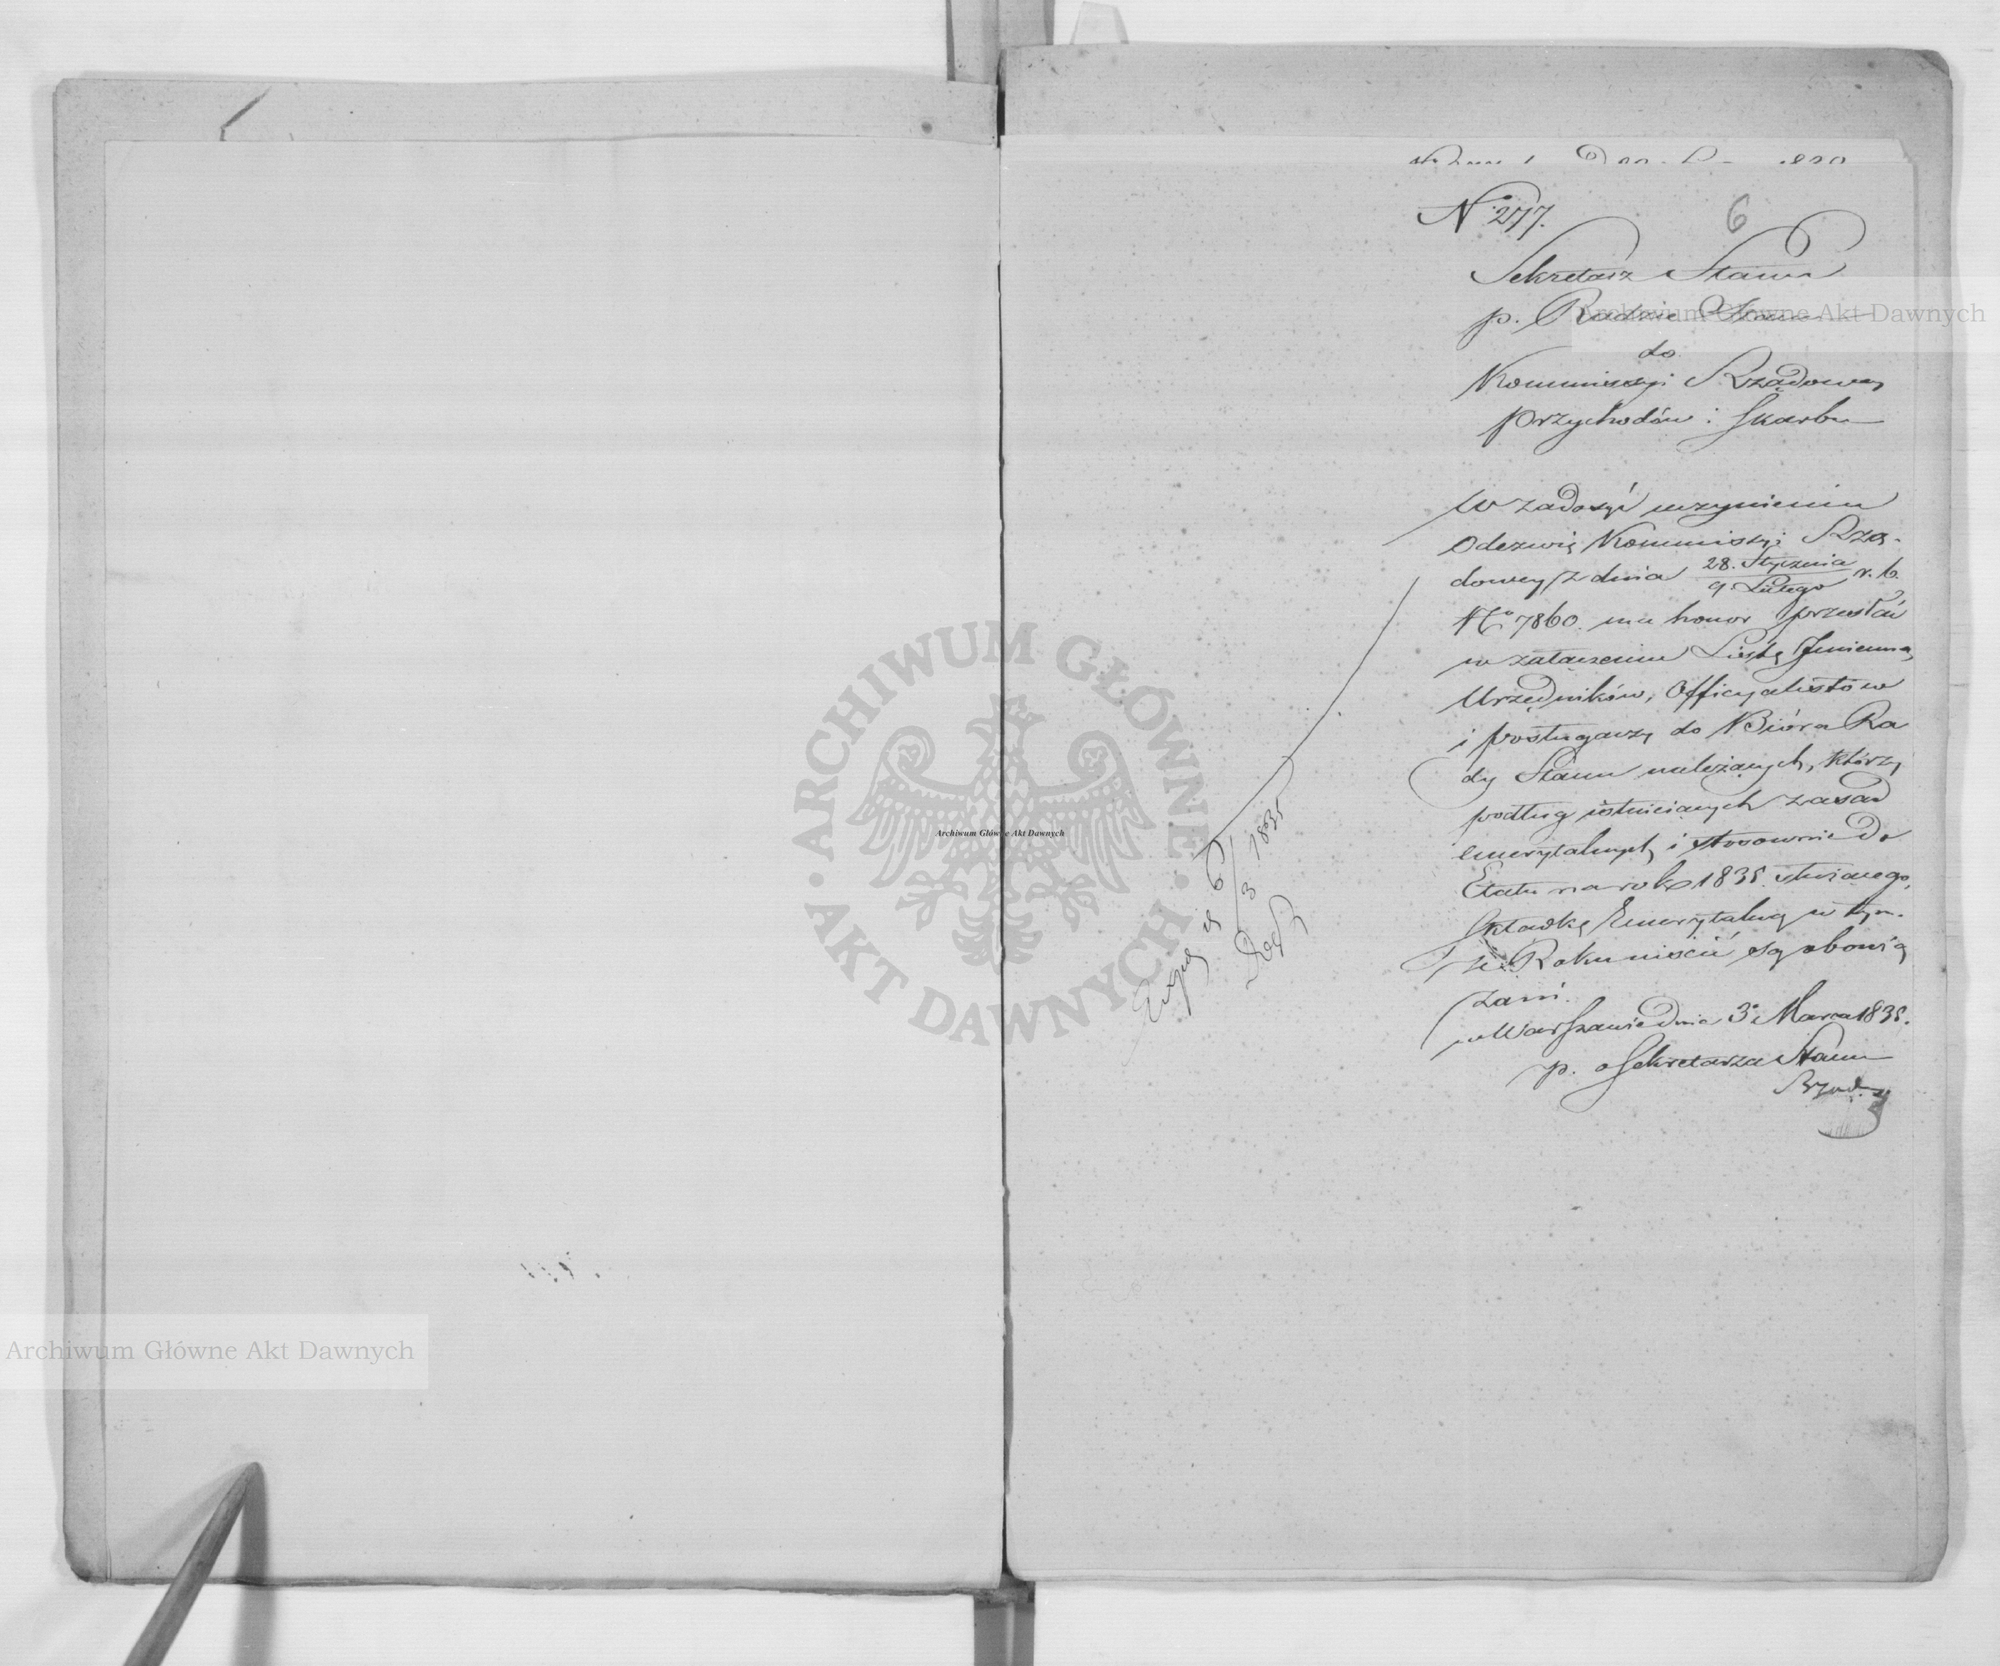 N° 277.
6
Sekretarz Stanu
p. Radzie Stanu
do
Kommissyi Rządowey
Przychodów i Skarbu
W zadosyć uczynieniu
Odezwie Kommissyi Rzą-
dowey z dnia 28. Stycznia / 9 Lutego r. b.
N° 7860. ma honor przesłać
w załączeniu Listę Jmienną
Urzędników, Officyalistów
i posługaczy do Bióra Ra
dy Stanu należących, którzy
podług istnieiących zasad
emerytalnych i stosownie do
Etatu na rok 1835.
Składkę Emerytalną w tym-
że Roku uiścić są obowią
zani.
w Warszawie dnia 3° Marca 1835.
p. o Sekretarza Stanu
6/3 1835
Archiwum Główne Akt Dawnych
Archiwum Główne Akt Dawnych
Archiwum Główne Akt Dawnych
ARCHIWUM GŁÓWNE · AKT DAWNYCH ·